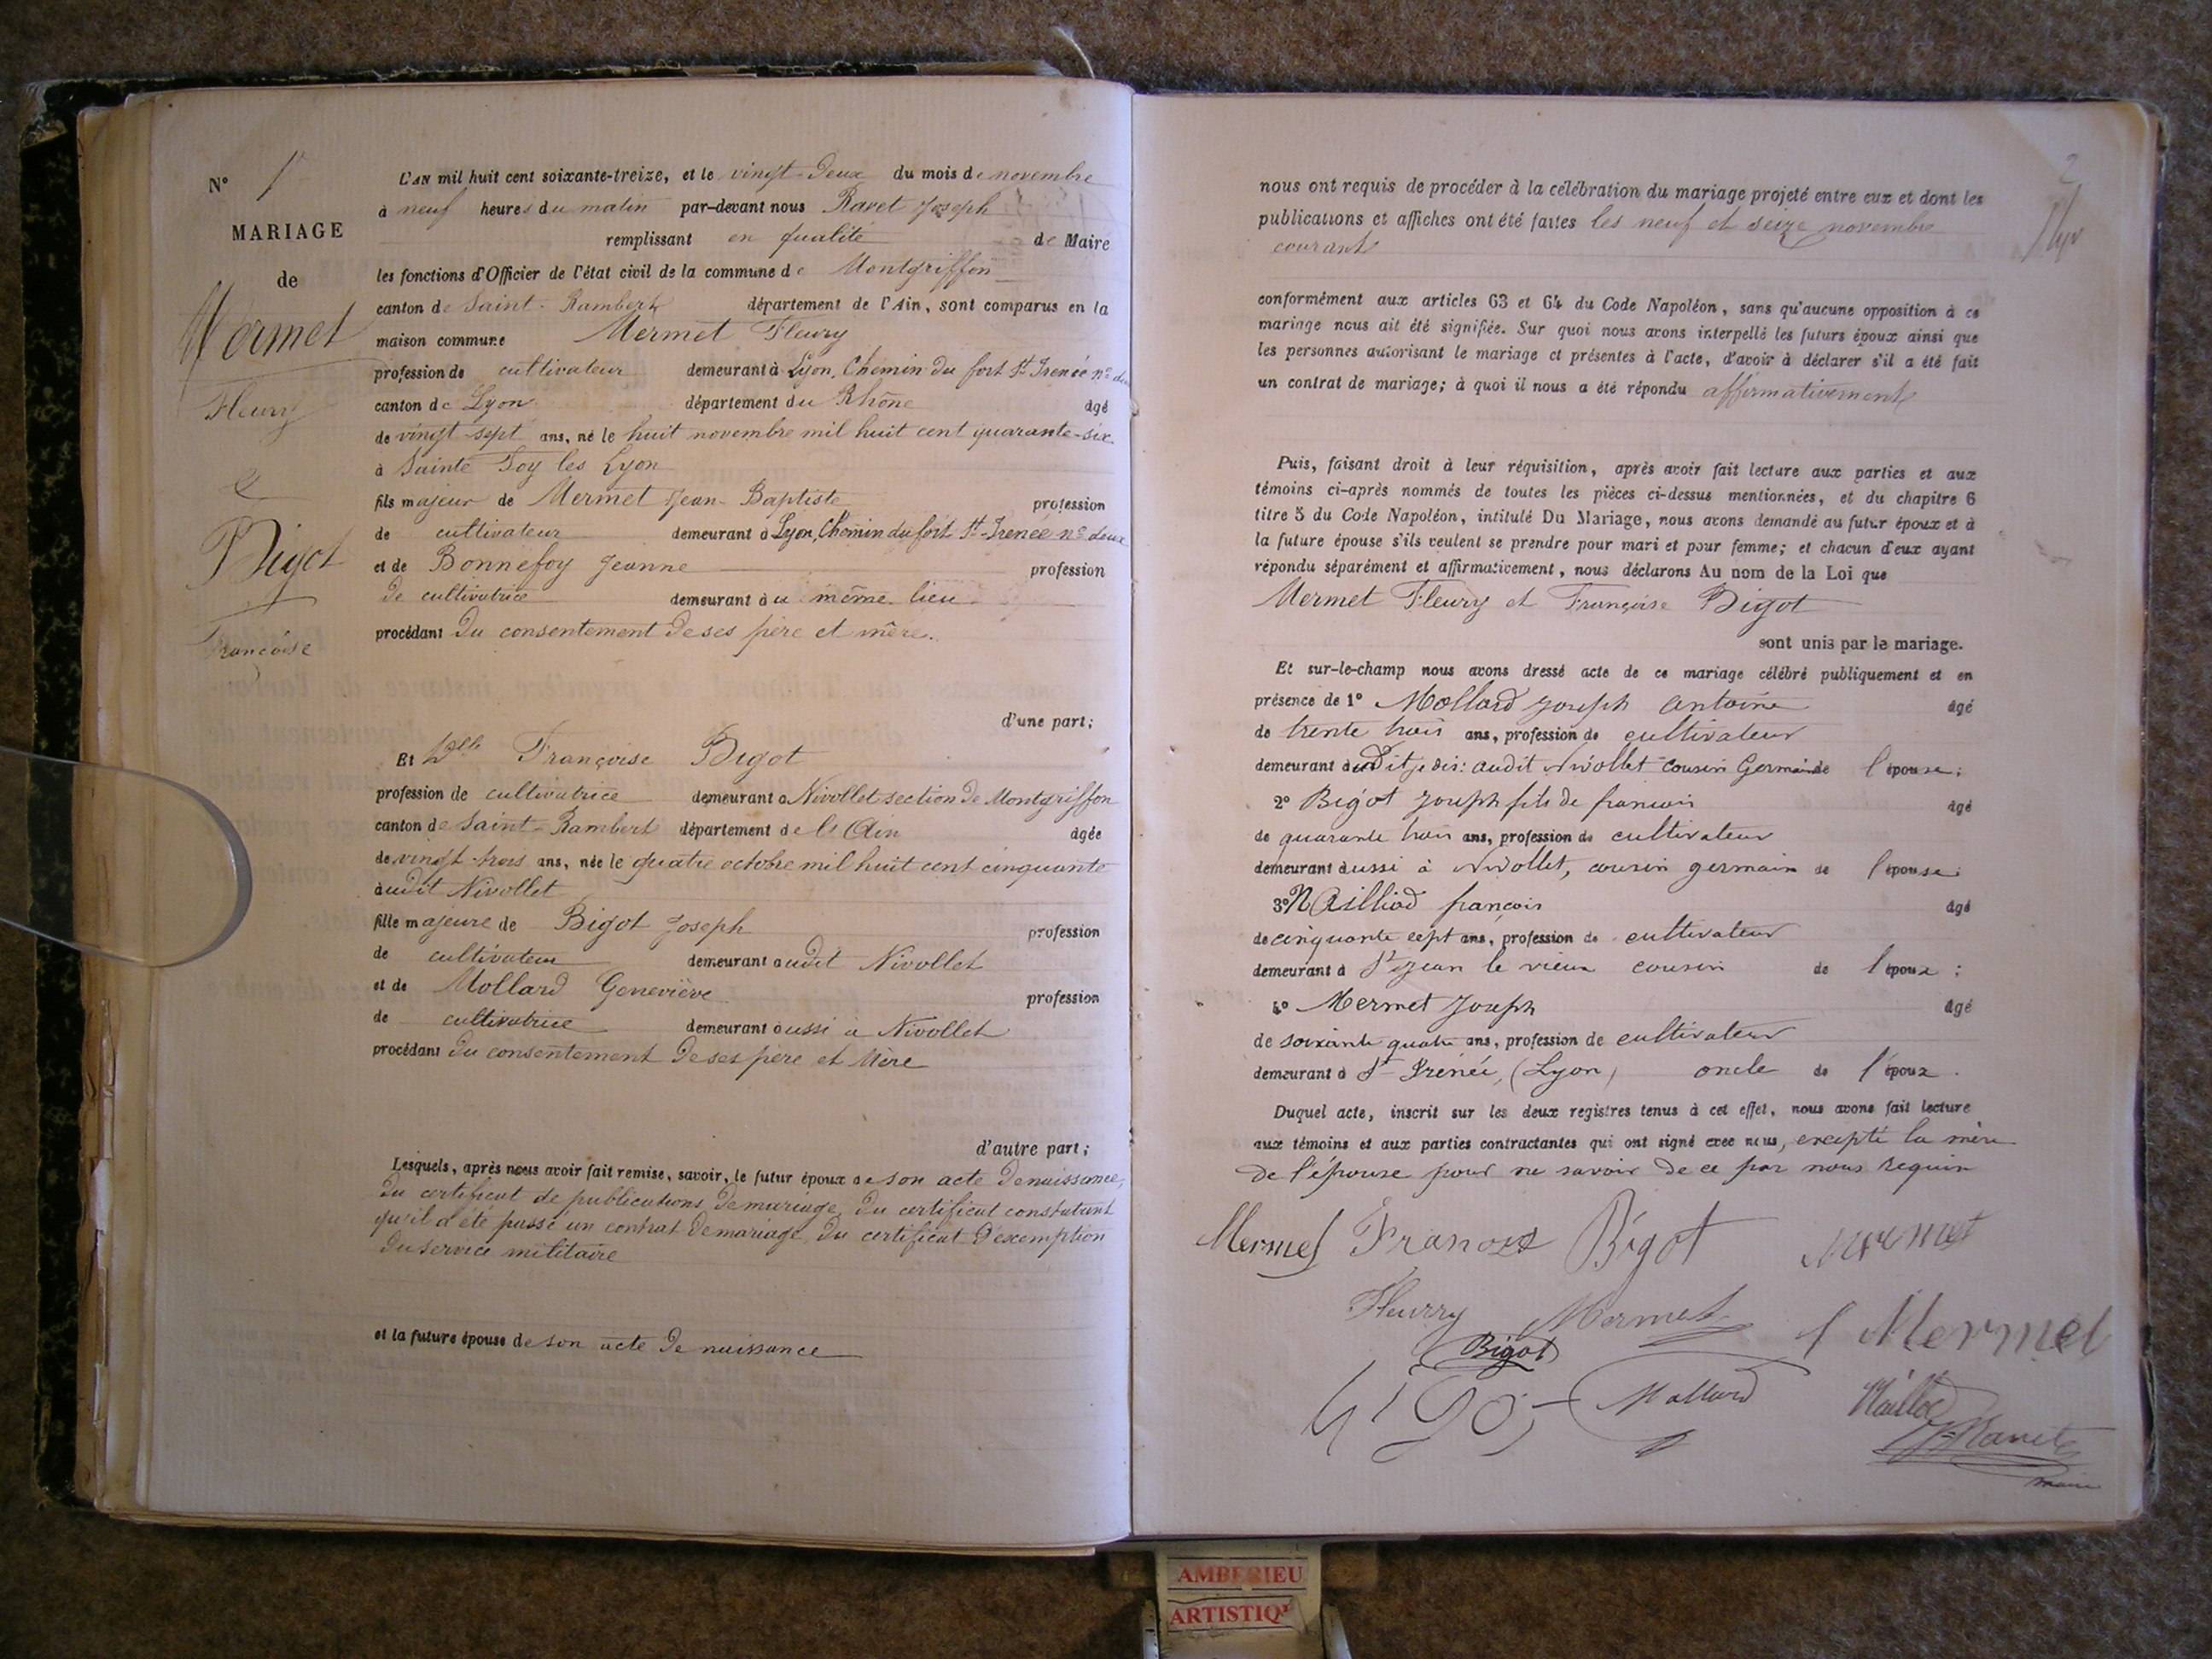 N° 1
MARIAGE
de
Mermet
Fleury
et
Bigot
Françoise
L'AN mil huit cent soixante-treize, et le vingt-deux du mois de novembre
à neuf heures du matin par-devant nous Ravet Joseph
remplissant en qualité de Maire
les fonctions d'Officier de l'état civil de la commune de Montgriffon
canton de Saint-Rambert département de l'Ain, sont comparus en la
maison commune Mermet Fleury
profession de cultivateur demeurant à Lyon, Chemin du fort St Irenée n° deux
canton de Lyon département du Rhône âgé
de vingt-sept ans, né le huit novembre mil huit cent quarante-six
à Sainte Foy les Lyon
fils majeur de Mermet Jean-Baptiste profession
de cultivateur demeurant à Lyon, Chemin du fort St-Irenée n° deux
et de Bonnefoy Jeanne profession
de cultivatrice demeurant au même lieu
procédant du consentement de ses père et mère.
d'une part;
Et Dlle Françoise Bigot
profession de cultivatrice demeurant à Nivollet section de Montgriffon
canton de Saint-Rambert département de l'Ain âgée
de vingt-trois ans, née le quatre octobre mil huit cent cinquante
audit Nivollet
fille majeure de Bigot Joseph profession
de cultivateur demeurant audit Nivollet
et de Mollard Geneviève profession
de cultivatrice demeurant aussi à Nivollet
procédant du consentement de ses père et Mère
d'autre part;
Lesquels, après nous avoir fait remise, savoir, le futur époux de son acte de naissance,
du certificat de publications de mariage, du certificat constatant
qu'il a été passé un contrat de mariage, du certificat d'exemption
du service militaire
et la future épouse de son acte de naissance
2
nous ont requis de procéder à la célébration du mariage projeté entre eux et dont les
publications et affiches ont été faites les neuf et seize novembre
courant
conformément aux articles 63 et 64 du Code Napoléon, sans qu'aucune opposition à ce
mariage nous ait été signifiée. Sur quoi nous avons interpellé les futurs époux ainsi que
les personnes autorisant le mariage et présentes à l'acte, d'avoir à déclarer s'il a été fait
un contrat de mariage; à quoi il nous a été répondu affirmativement
Puis, faisant droit à leur réquisition, après avoir fait lecture aux parties et aux
témoins ci-après nommés de toutes les pièces ci-dessus mentionnées, et du chapitre 6
titre 5 du Code Napoléon, intitulé Du Mariage, nous avons demandé au futur époux et à
la future épouse s'ils veulent se prendre pour mari et pour femme; et chacun d'eux ayant
répondu séparément et affirmativement, nous déclarons Au nom de la Loi que
Mermet Fleury et Françoise Bigot
sont unis par le mariage.
Et sur-le-champ nous avons dressé acte de ce mariage célébré publiquement et en
présence de 1° Mollard Joseph Antoine âgé
de trente trois ans, profession de cultivateur
demeurant audit je dis: audit Nivollet cousin Germain de l'épouse;
2° Bigot Joseph fils de francois âgé
de quarante trois ans, profession de cultivateur
demeurant aussi à Nivollet, cousin germain de l'épouse;
3° Nailliod françois âgé
de cinquante sept ans, profession de cultivateur
demeurant à St Jean le vieux cousin de l'époux;
4° Mermet Joseph âgé
de soixante quatre ans, profession de cultivateur
demeurant à St Irénée, (Lyon) oncle de l'époux.
Duquel acte, inscrit sur les deux registres tenus à cet effet, nous avons fait lecture
aux témoins et aux parties contractantes qui ont signé avec nous, excepté la mère
de l'épouse pour ne savoir de ce par nous requise
Mermet Françoise Bigot Mermet
Fleurry Mermet J Mermet
Bigot
Bigot Mollard Naillod
J. Ravet
maire
AMBERIEU
ARTISTIQUE